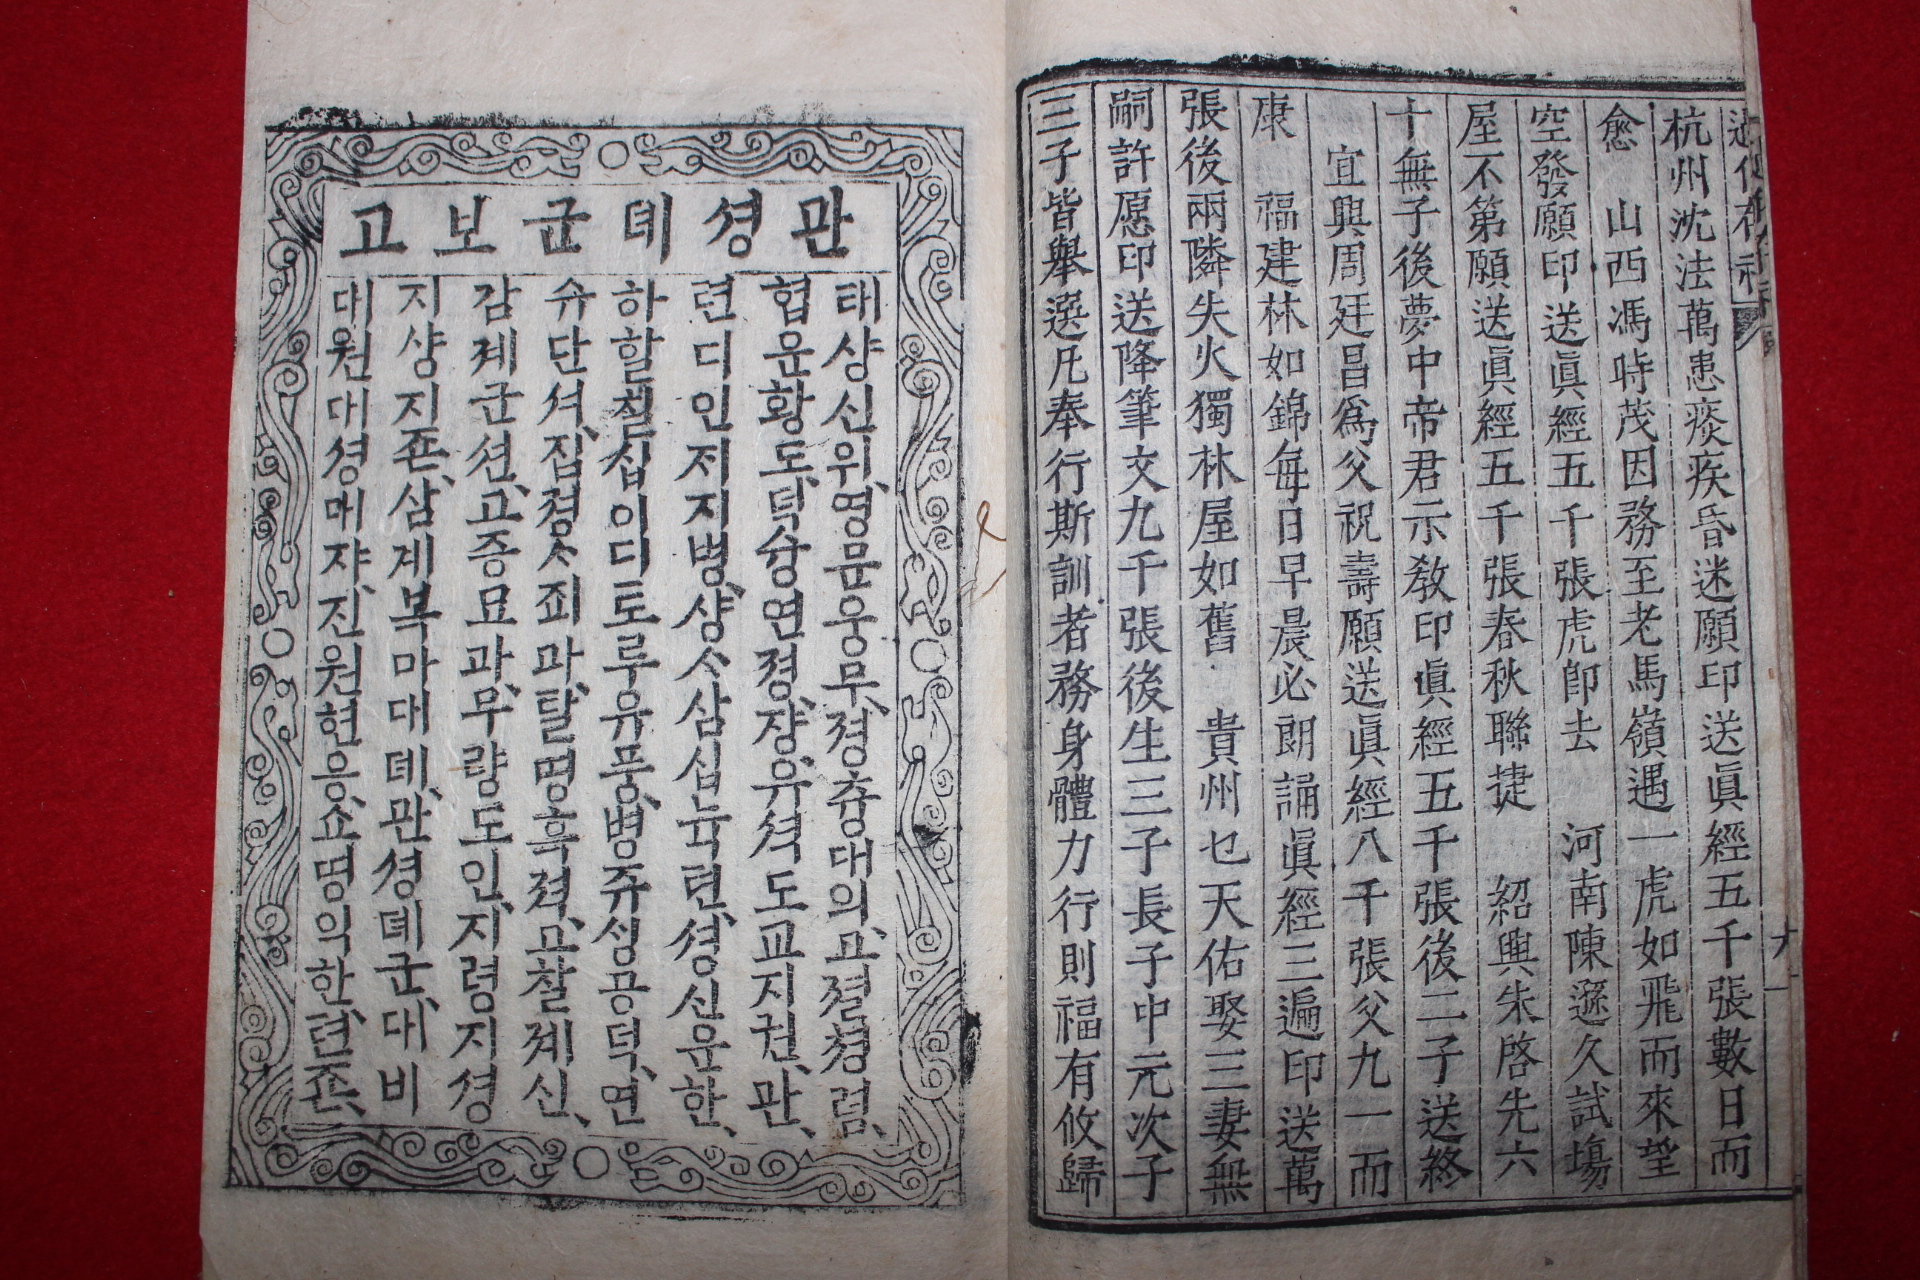 杭州沈法萬患痰疾昏迷願印送眞經五千張數日而
愈 山西馮時茂因務至老馬嶺遇一虎如飛而來望
空發願印送眞經五千張虎卽去 河南陳遜久試場
屋不第願送眞經五千張春秋聯捷 紹興朱啓先六
十無子後夢中帝君示教印眞經五千張後二子送終
宜興周廷昌爲父祝壽願送眞經八千張父九一而
康 福建林如錦每日早晨必朗誦眞經三遍印送萬
張後兩隣失火獨林屋如舊 貴州乜天佑娶三妻無
嗣許愿印送降筆文九千張後生三子長子中元次子
三子皆舉選凡奉行斯訓者務身體力行則福有攸歸
관셩뎨군보고
태샹신위、영문웅무、졍츙대의、고졀쳥렴、
협운황도、덕샹연졍、쟝유셕도교지권、관、
텬디인저지병、샹ᄉ삼십뉵텬、셩신운한、
하할칠십이디토루유풍、병쥬싱공덕、연
슈단셔、집졍ᄉ죄과、탈명흑젹、고찰졔신、
감졔군션、고증묘과、무량도인、지령지셩
지샹지죤、삼계복마대뎨、관셩뎨군、대비
대원대셩대쟈、진원현응、쇼명익한、텬죤、